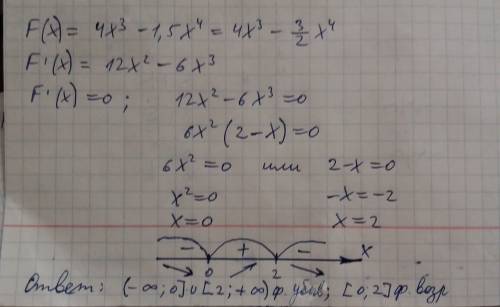 F(x) = 4x³ - 1,5x⁴ = 4x³ - 3/2 x⁴
F'(x) = 12x² - 6x³
F'(x) = 0; 12x² - 6x³ = 0
6x² (2 - x) = 0
6x² = 0 или 2 - x = 0
x² = 0 -x = -2
x = 0 x = 2
- + - x
0 2
Ответ: (-∞; 0] ∪ [2; +∞) ф. убыв; [0; 2] ф. возр